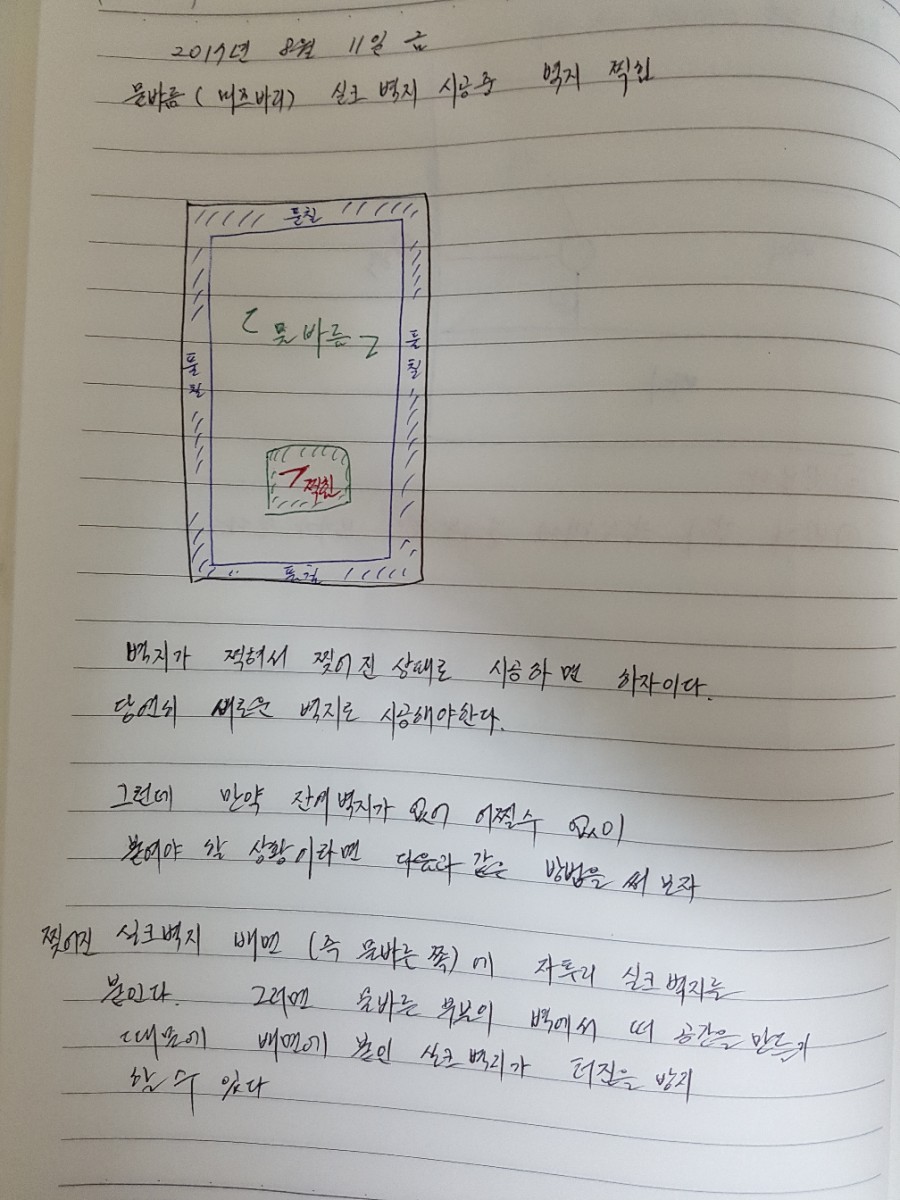 2017년 8월 11일 금
물바름 ( 미즈바리) 실크 벽지 시공중 벽지 찍힘
풀칠
[ 물바름 ]
풀칠
풀칠
ㄱ찍힘
풀칠
벽지가 찍혀서 찢어진 상태로 시공하면 하자이다.
당연히 새로운 벽지로 시공해야한다.
그런데 만약 잔여벽지가 없어 어쩔수 없이
붙여야 할 상황이라면 다음과 같은 방법을 써 보자
찢어진 실크벽지 배면 (즉 물바른 쪽)에 자투리 실크벽지를
붙인다. 그러면 물바른 부분이 벽에서 떠 공간을 만들기
때문에 배면에 붙인 실크 벽지가 터짐을 방지
할 수 있다